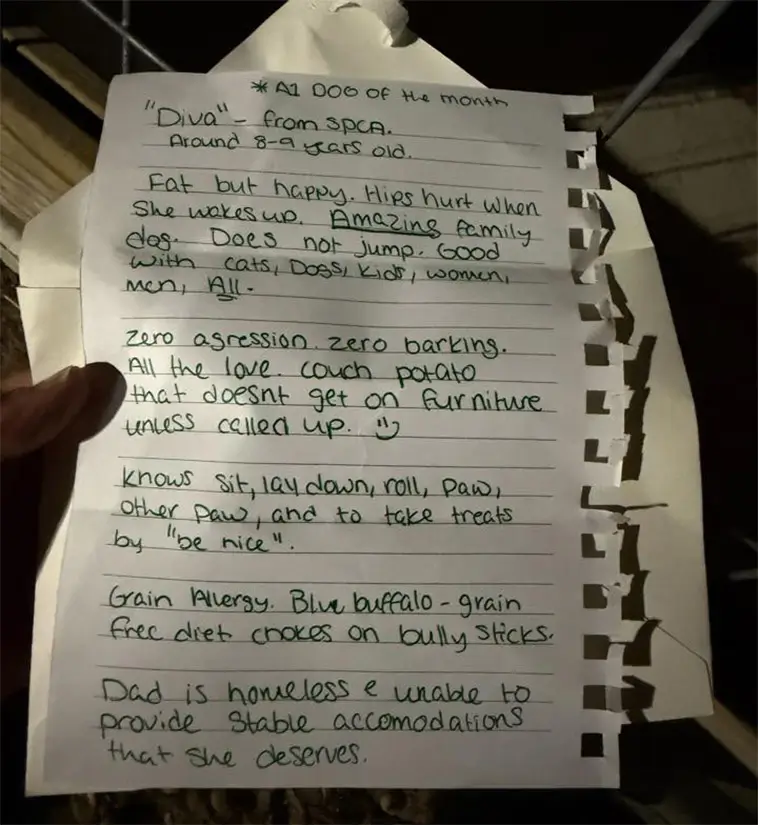 *A1 DOG OF the month
"Diva" - from SPCA.
Around 8-9 years old.
Fat but happy. Hips hurt when
she wakes up. Amazing family
dog. Does not jump. Good
with cats, Dogs, kids, women,
men, All.
Zero agression. zero barking.
All the love. couch potato
that doesnt get on furniture
unless called up. :)
knows sit, lay down, roll, paw,
other paw, and to take treats
by "be nice".
Grain Allergy. Blue buffalo - grain
free diet chokes on bully sticks.
Dad is homeless & unable to
provide stable accomodations
that she deserves.